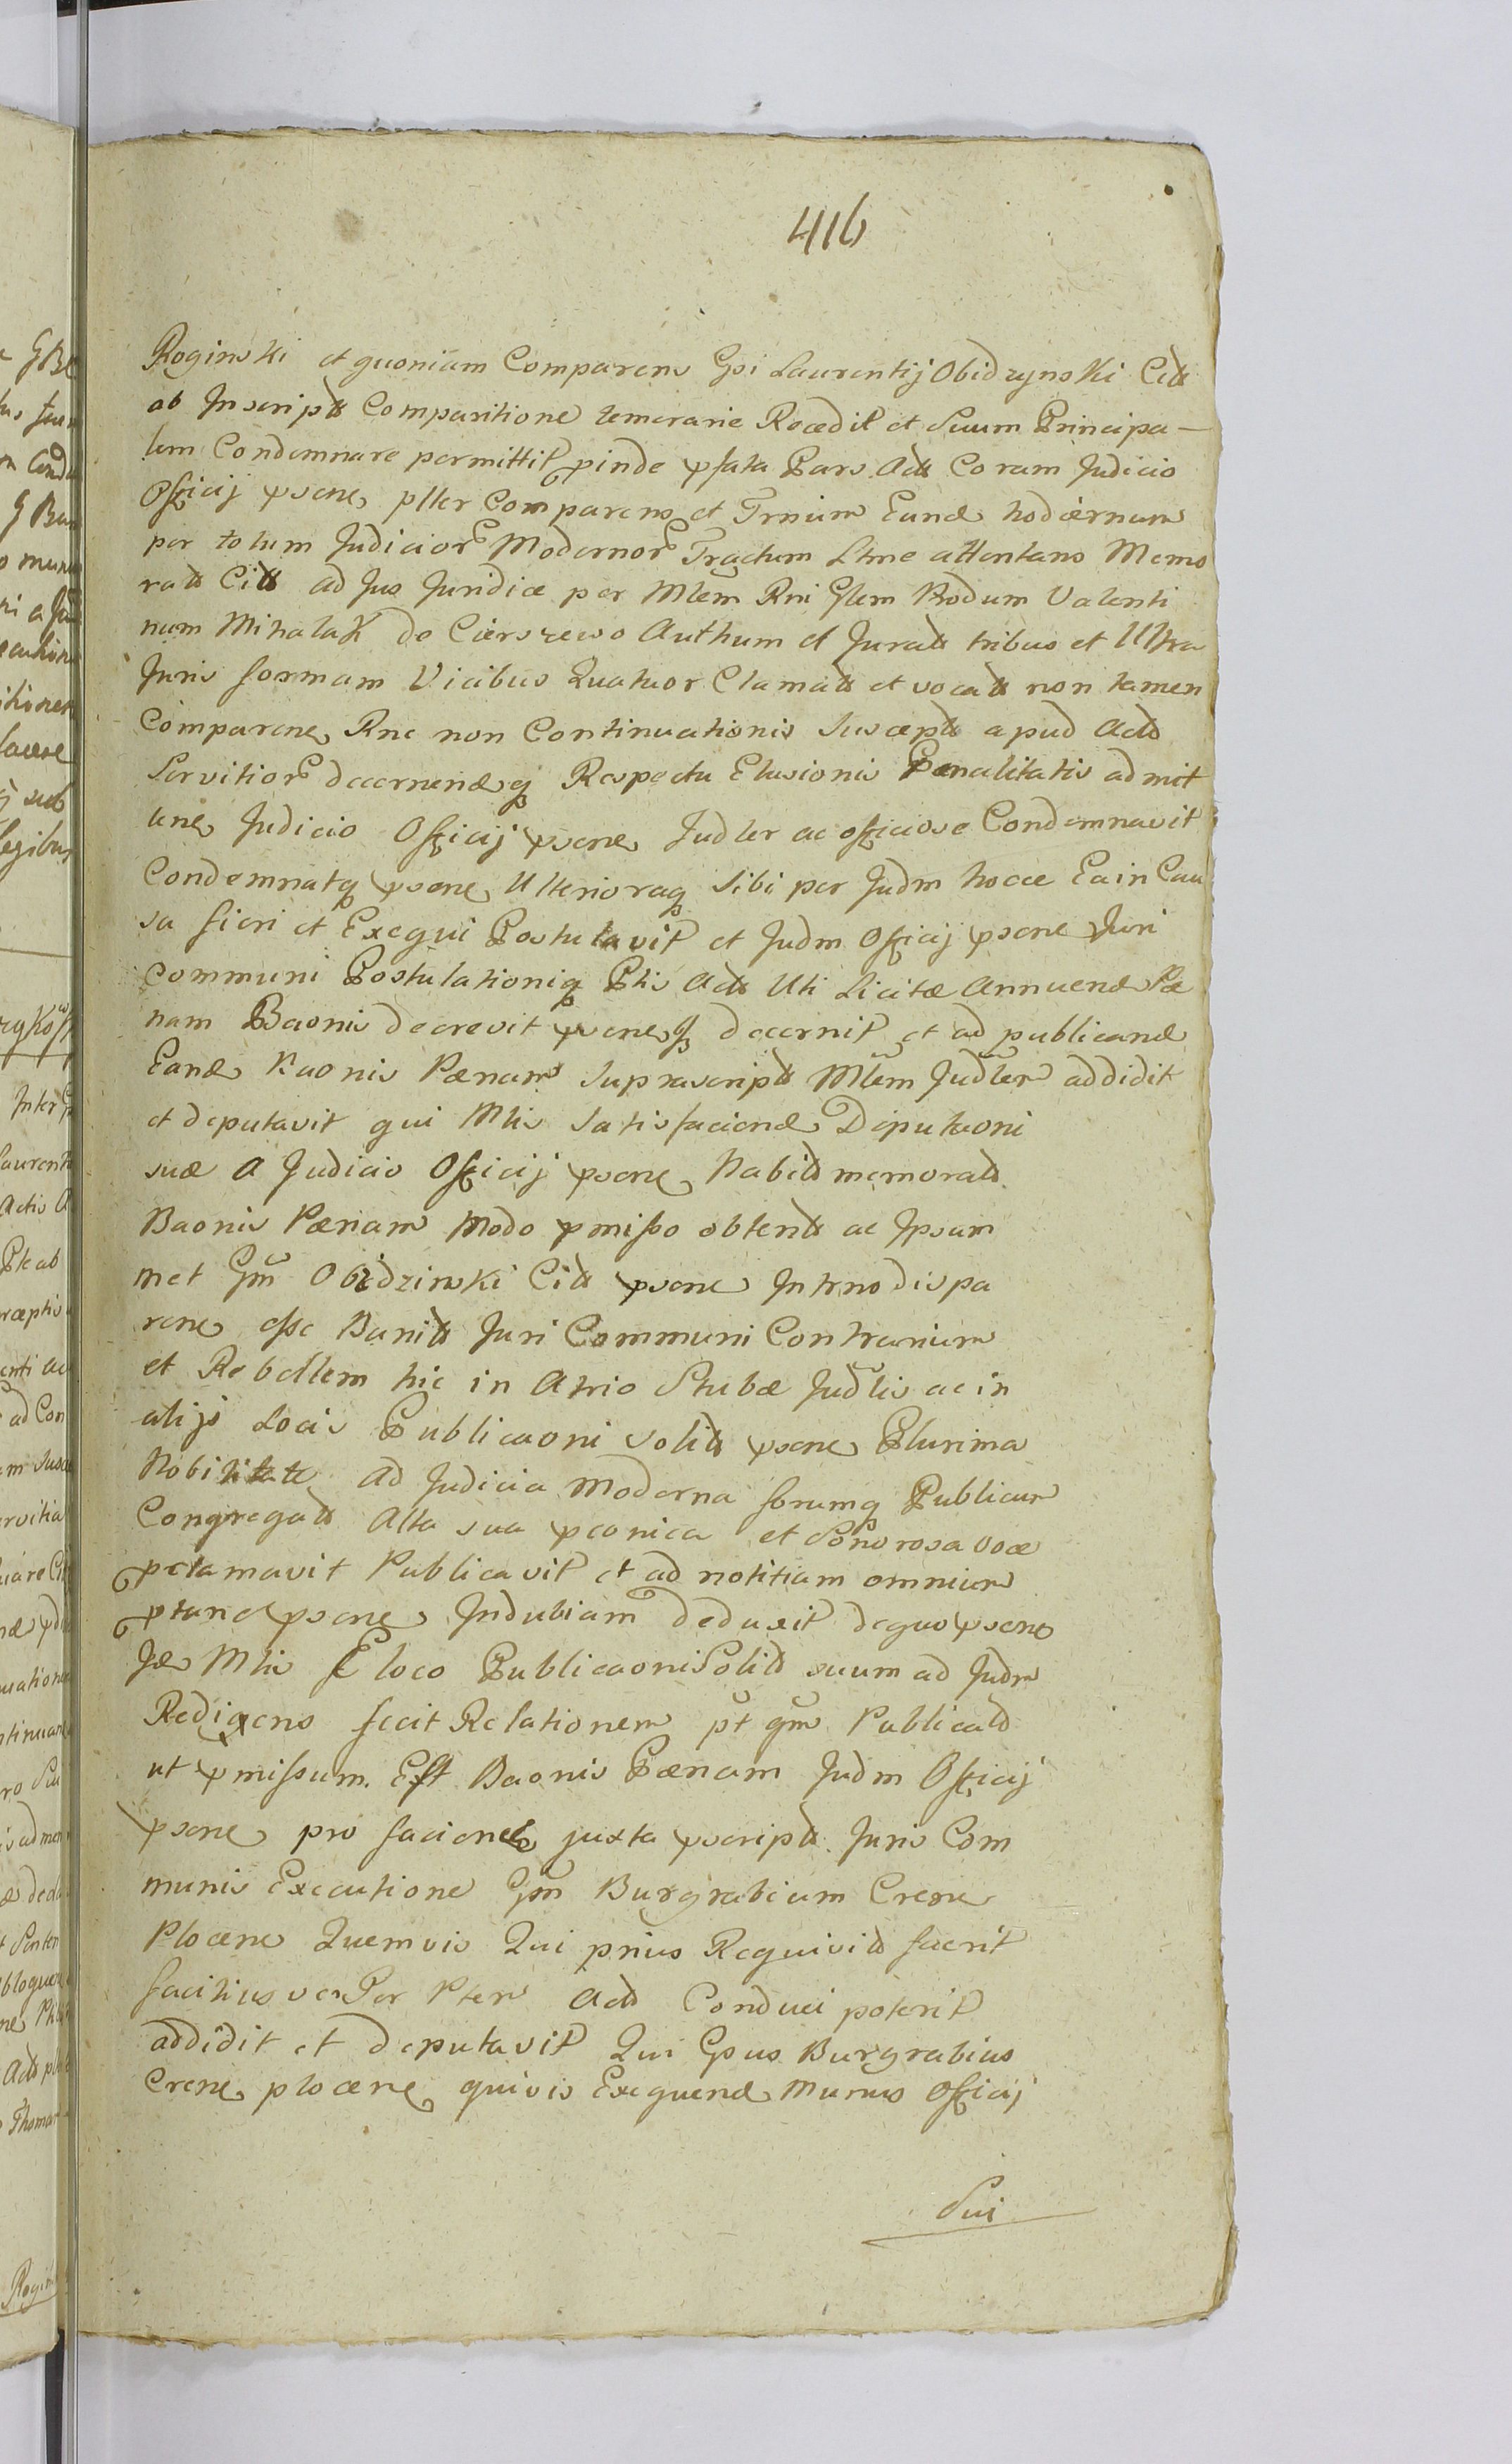 416
Roginski et quoniam Comparens Gsi Laurentij Obidzynski Citt
ab Inscriptt Comparitione temerarie Recedit et Suum Principa-
lem Condemnare permittit pinde psata Pars Actt Coram Judicio
Officij psene pller Comparens et Trnum Eund hodiernum
per totum Judicior Modernor Tractum Ltme attentans Memo
ratt Citt ad Jus Juridice per Mlem Rni Glem Produm Valenti
num Mihalak de Cierszewo Authum et Juratt tribus et Ultra
Juris formam Vicibus Quatuor Clamatt et vocatt non tamen
Comparene Rne non Continuationis Susceptt apud Actt
Servitior decernendq Respectu Elusionis Poenalitatis admit
tune Judicio Officij psene Judler ac officiose Condemnavit
Condemnatq psene Ulterioraq Sibi per Judm hocce Ea in Cau
sa fieri et Exequi Postulavit et Judm Officij psene Juri
communi Postulationiq Ptis Actt Uti Licitæ Annuend Pæ
nam Baonis decrevit pseneq decernit et ad publicand
Eand Baonis Pænam suprascriptt Mlem Judlem addidit
et deputavit qui Mlis Satisfaciend Deputaoni
suæ a Judicio Officij psene habitt memoratt
Baonis Pænam modo pmisso obtentt ac Ipsum
met Gm Obidzinski Citt psene Intrno dispa
rene esse Banitt Juri Communi Contrarium
et Rebellem hic in Atrio Stubæ Judlis ac in
alijs Locis Publicaoni solitt psene Plurima
Nobilitate ad Judicia Moderna forumq Publicum
Congregatt Alta sua pconica et Sonorosa voce
pclamavit Publicavit et ad notitiam omnium
ptand psene Indubiam deduxit dequo psene
Jde Mlis E loco Publicaoni Solitt suum ad Judm
Redigens fecit Relationem pt qm Publicatt
ut pmissum Est Baonis Pænam Judm Officij
psene pro faciend juxta pscriptt Juris Com
munis Executione Gm Burgrabium Crene
Plocene Quemvis Qui prius Requisitt fuerit
facilius ve Per Ptem Actt Conduci poterit
addidit et deputavit Qui Gsus Burgrabius
Crene plocene quivis Exequend Munus Officij
Sui